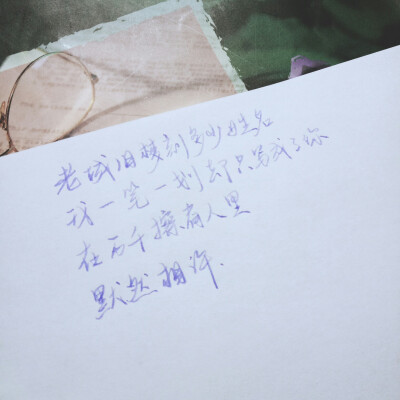 老城旧梦刻多少姓名
我一笔一划却只写成了你
在万千擦肩人里
默然相许.